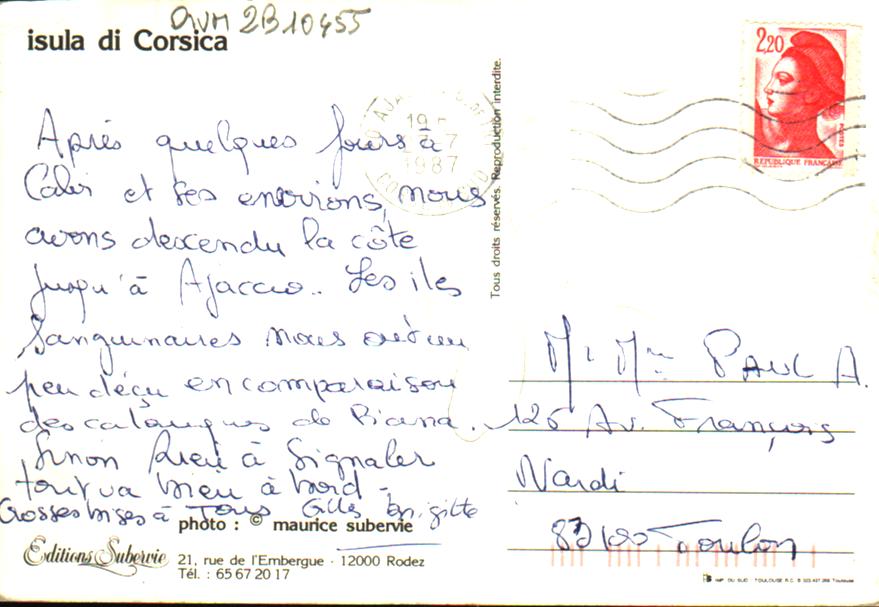 QVM 2B10455
isula di Corsica
Après quelques jours à
Calvi et ses environs, nous
avons descendu la côte
jusqu'à Ajaccio.. Les iles
Sanguinaires nous ont un
peu déçu en comparaison
des calanques de Piana.
Sinon Rien à Signaler
tout va bien à bord -
Grosses bises à Tous Gilles Brigitte
photo : © maurice subervie
Editions Subervie
21, rue de l'Embergue · 12000 Rodez
Tél. : 65 67 20 17
Tous droits réservés. Reproduction interdite.
AJA
19
7
1987
2,20
POSTES
REPUBLIQUE FRANÇAISE
Mr Mme PAUL A.
126 Av. François
Nardi
83100 Toulon
IMP. DU SUD - TOULOUSE